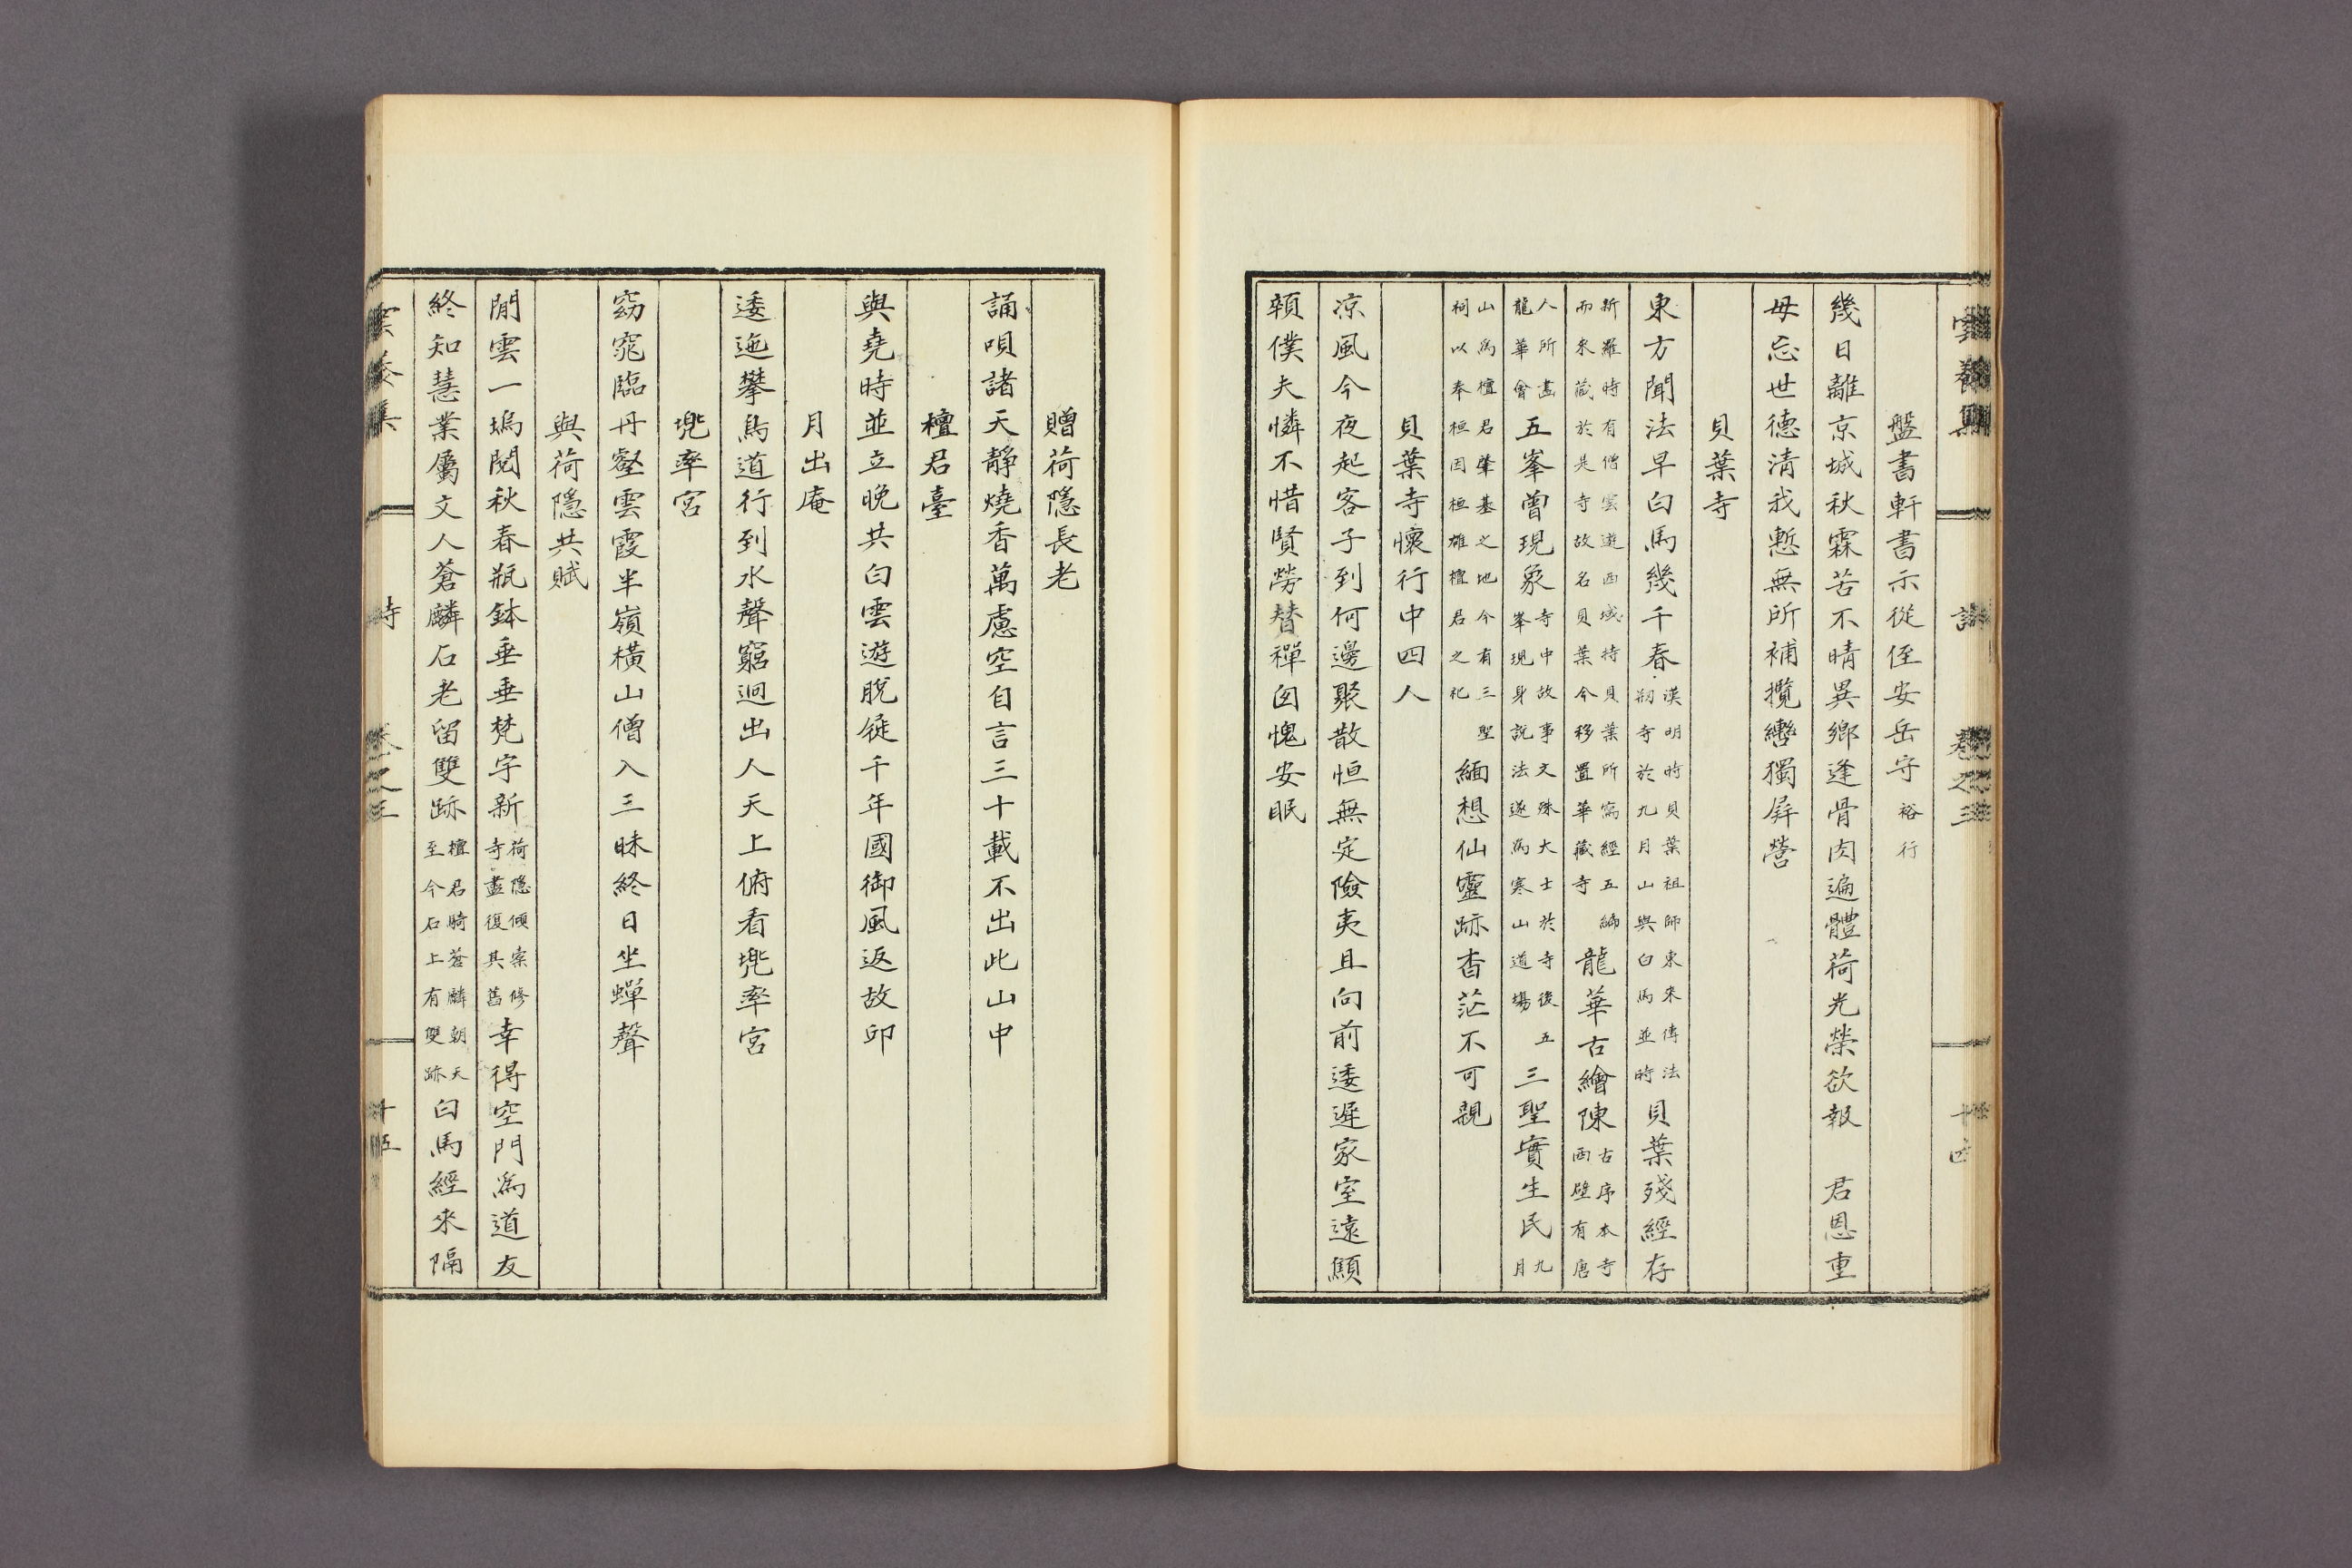 盤書軒書示從侄安岳守裕行
幾日離京城秋霖苦不晴異鄉逢骨肉遍體荷光榮欲報 君恩重
毋忘世德清我慙無所補攬轡獨屛營
貝葉寺
東方聞法早白馬幾千春漢明時貝葉祖師東來傳法剏寺於九月山與白馬並時貝葉殘經存
新羅時有僧雲遊西域持貝葉所寫經五編而來藏於是寺故名貝葉今移置華藏寺龍華古繪陳古序本寺西壁有唐
人所畵龍華會五峯曾現象寺中故事文殊大士於寺後五峯現身說法遂爲寒山道場三聖實生民九月
山爲檀君肇基之地今有三聖祠以奉桓因桓雄檀君之祀緬想仙靈跡杳茫不可親
貝葉寺懷行中四人
凉風今夜起客子到何邊聚散恒無定險夷且向前逶遲家室遠顚
頓僕夫憐不惜賢勞替禪囱愧安眠
贈荷隱長老
誦唄諸天靜燒香萬慮空自言三十載不出此山中
檀君臺
與堯時並立晚共白雲遊脫屣千年國御風返故邱
月出庵
逶迤攀鳥道行到水聲窮迥出人天上俯看兠率宮
兠率宮
窈窕臨丹壑雲霞半嶺橫山僧入三昧終日坐蟬聲
與荷隱共賦
閒雲一塢閱秋春瓶鉢垂垂梵宇新荷隱傾槖修寺盡復其舊幸得空門爲道友
終知慧業屬文人蒼麟石老留雙跡檀君騎蒼麟朝天至今石上有雙跡白馬經來隔
詩
卷之三
十五